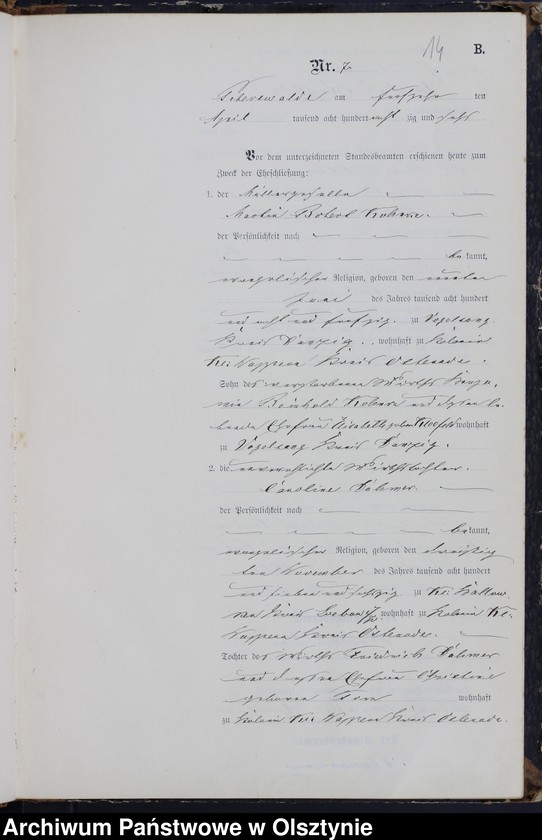 14 B.
Nr. 7
am fünfzehnten
April tausend acht hundert acht zig und sechs
Vor dem unterzeichneten Standesbeamten erschienen heute zum
Zweck der Eheschließung:
1. der Müllergeselle
Martin Robert
der Persönlichkeit nach
bekannt,
evangelischer Religion, geboren den
des Jahres tausend acht hundert
und acht und fünfzig zu Vogelsang
Kreis Danzig, wohnhaft zu Kolonie
Kl: Nappern Kreis Osterode.
Sohn des verstorbenen Wirths
Reinhold und dessen le-
benden Ehefrau Elisabeth geboren wohnhaft
zu Vogelsang Kreis Danzig.
2. die unverehelichte Wirthstochter
Caroline Dähmer.
der Persönlichkeit nach
bekannt,
evangelischer Religion, geboren den dreißig
ten November des Jahres tausend acht hundert
und sieben und sechszig zu Kl:
Kreis wohnhaft zu Kolonie Kl.
Nappern Kreis Osterode.
Tochter des Wirths Friedrich Dähmer
und dessen Ehefrau Christine
geborene wohnhaft
zu Kolonie Kl: Nappern Kreis Osterode.
Archiwum Państwowe w Olsztynie